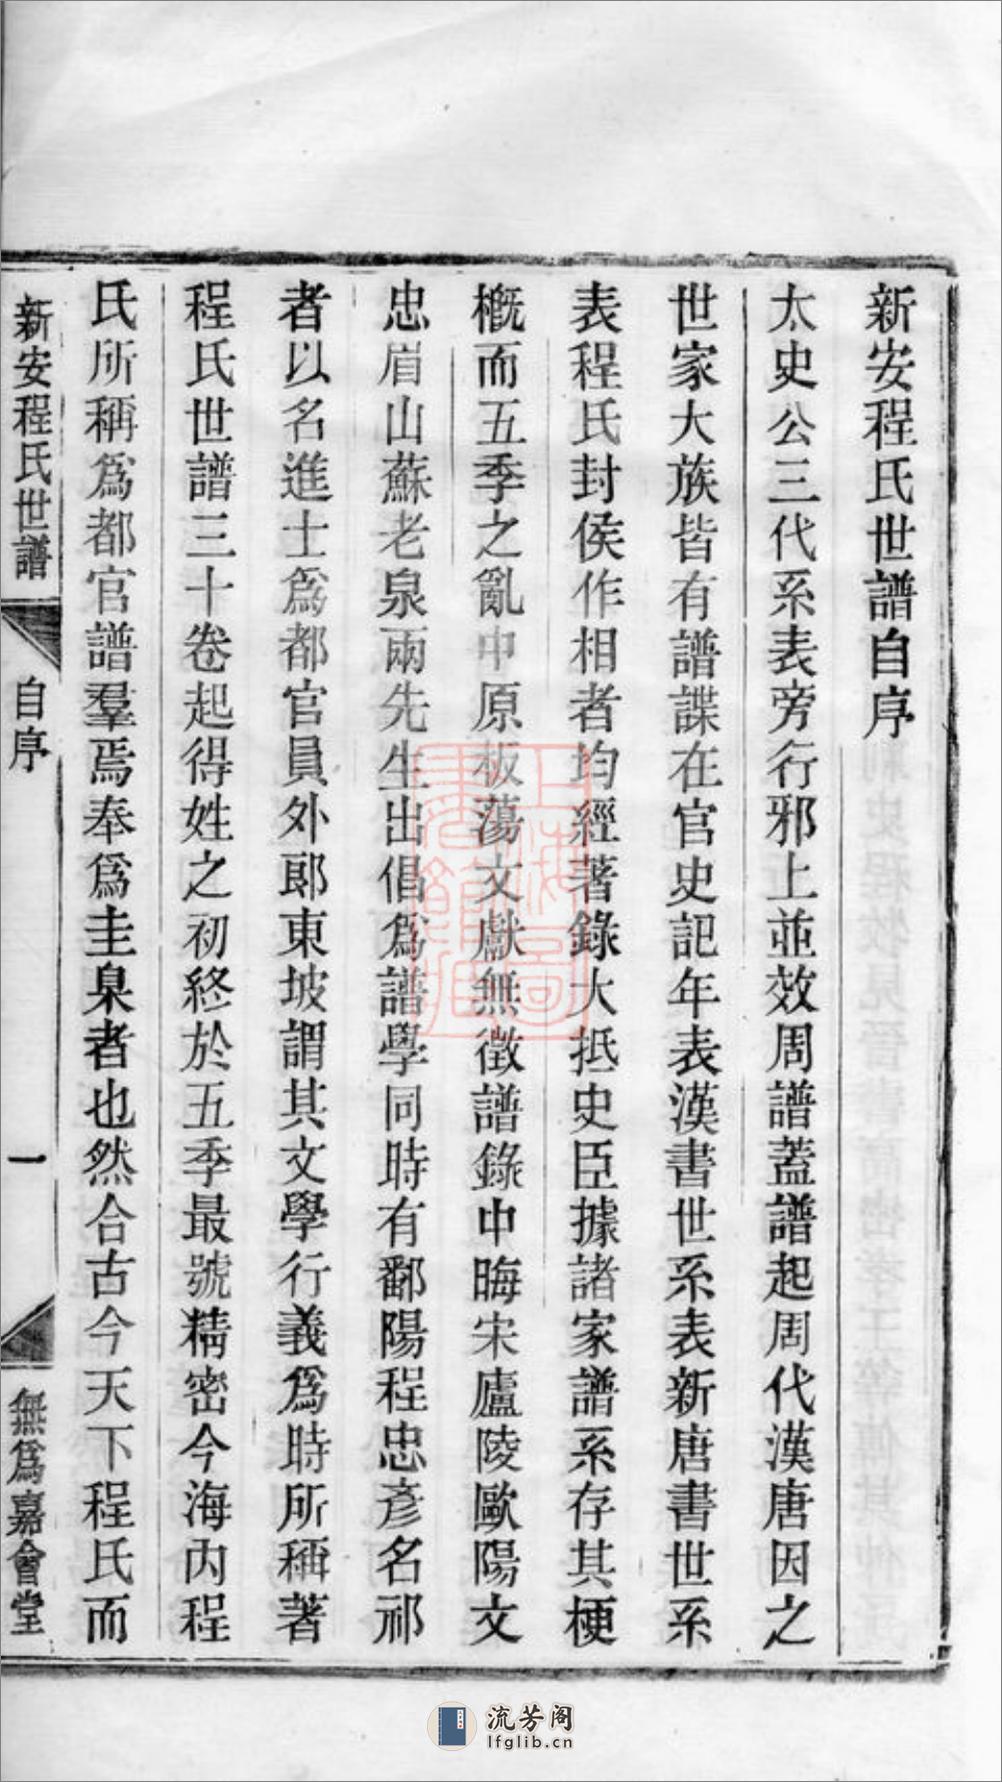 新安程氏世譜自序
太史公三代系表旁行邪上並效周譜蓋譜起周代漢唐因之
世家大族皆有譜諜在官史記年表漢書世系表新唐書世系
表程氏封侯作相者均經著錄大抵史臣據諸家譜系存其梗
概而五季之亂中原板蕩文獻無徵譜錄中晦宋廬陵歐陽文
忠眉山蘇老泉兩先生出倡爲譜學同時有鄱陽程忠彥名祁
者以名進士爲都官員外郎東坡謂其文學行義爲時所稱著
程氏世譜三十卷起得姓之初終於五季最號精密今海內程
氏所稱爲都官譜羣焉奉爲圭臬者也然合古今天下程氏而
新安程氏世譜
自序
一
無爲嘉會堂
上海圖
書館藏
流芳阁
lfglib.cn